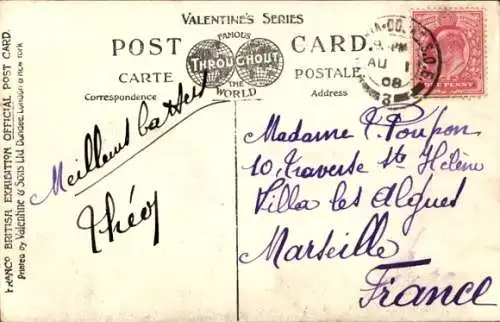 VALENTINE'S SERIES
POST CARD.
FAMOUS
THROUGHOUT
THE
WORLD
CARTE POSTALE
Correspondence Address
FRANCO BRITISH EXHIBITION OFFICIAL POST CARD.
Printed by Valentine & Sons Ltd Dundee, London & New York
9. PM
AU 1
08
3
S.O.E.
PENNY
Meilleurs baisers
Théo
Madame T. Poupon
10, Traverse Ste Hélène
Villa les Algues
Marseille
France